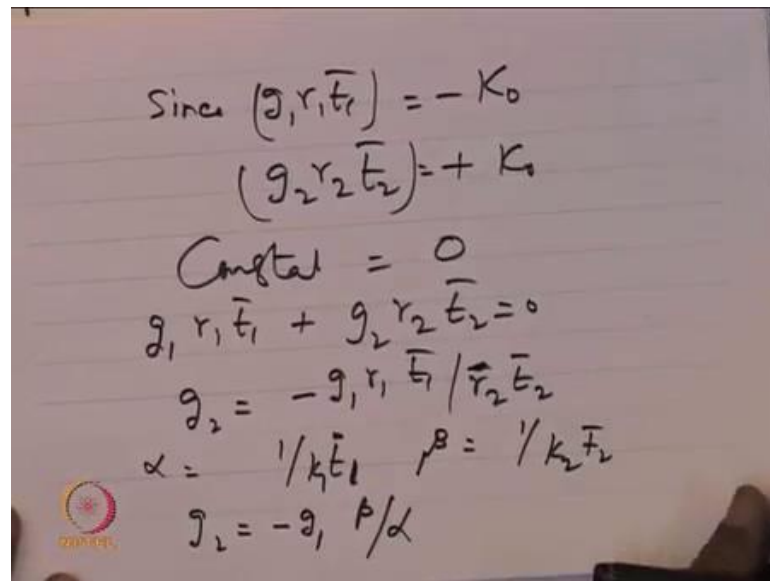 Since (g₁r₁t̄₁) = - K₀
(g₂r₂t̄₂) = + K₀
Constal = 0
g₁ r₁ t̄₁ + g₂ r₂ t̄₂ = 0
g₂ = - g₁ r₁ t̄₁ / r̄₂ t̄₂
α = 1/k₁t̄₁ β = 1/k₂t̄₂
g₂ = - g₁ β/α
NPTEL